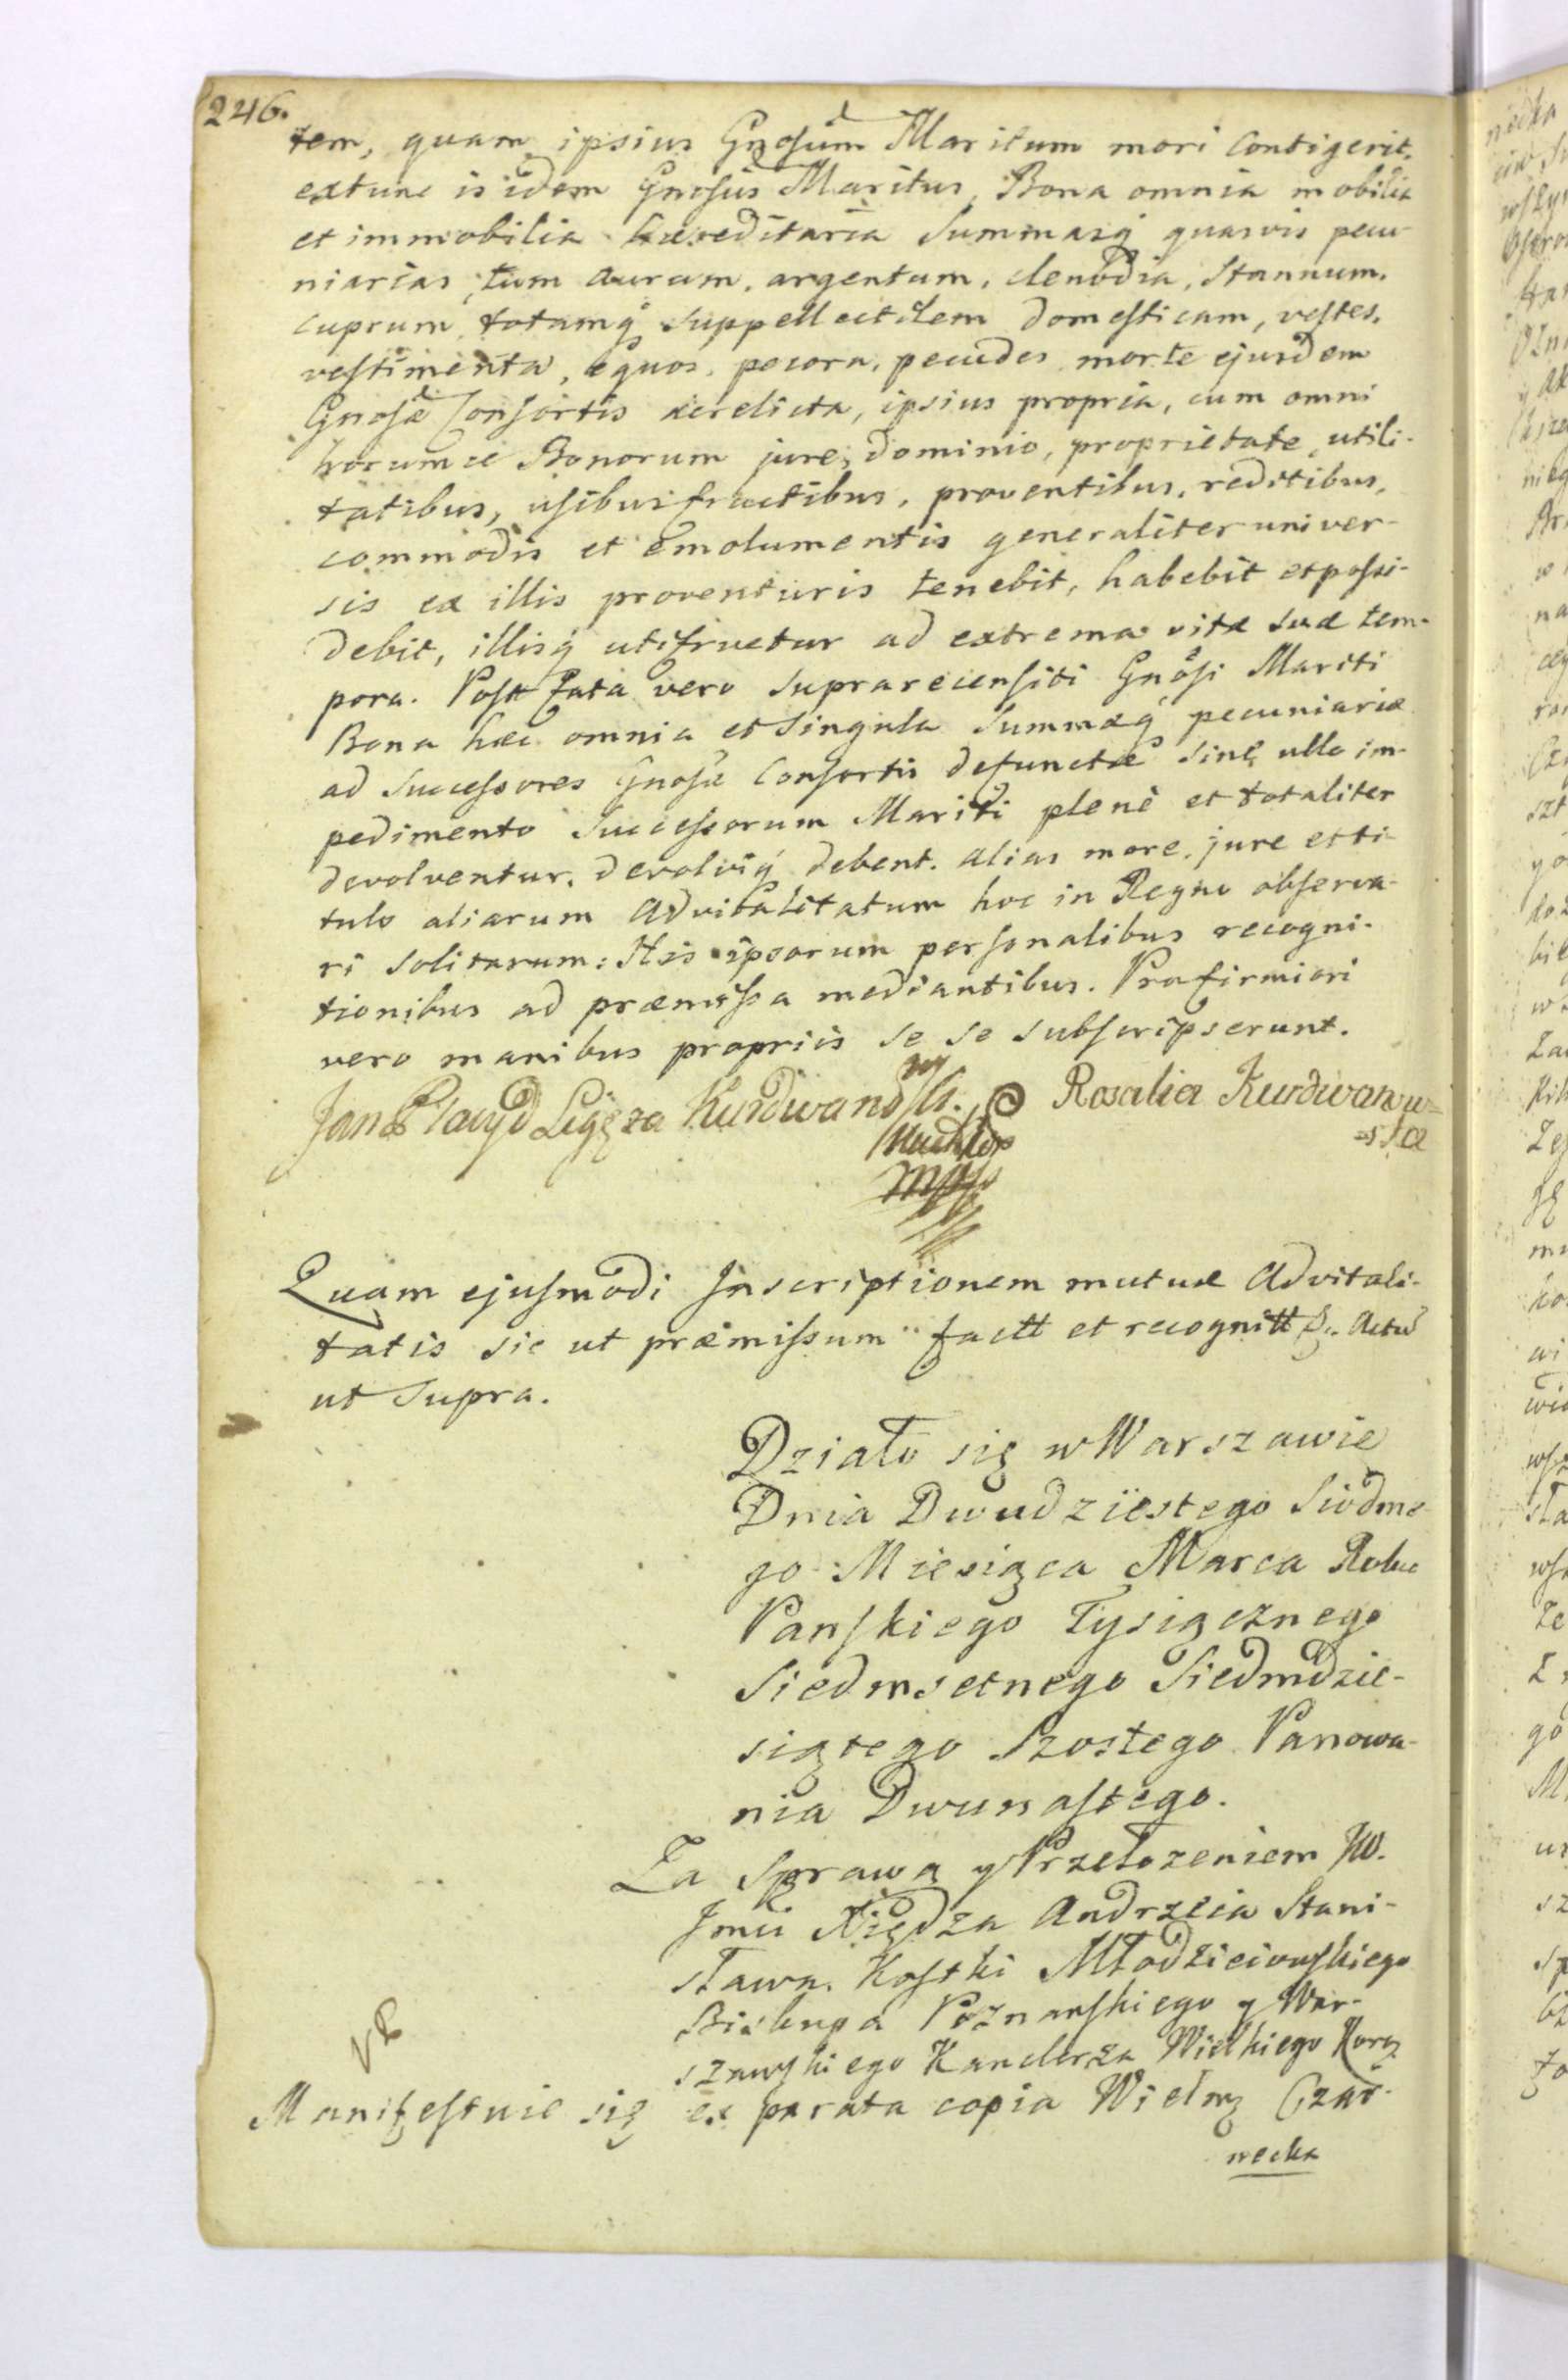 246.
tem, quam ipsius Gnosum Maritum mori contigerit,
extunc is idem Gnosus Maritus, Bona omnia mobilia
et immobilia hæreditaria Summasq quasvis pecu-
niarias, tum aurum, argentum, clenodia, Stannum,
cuprum, totamq suppellectilem domesticam, vestes,
vestimenta, equos, pecora, pecudes morte ejusdem
Gnosæ Consortis derelicta, ipsius propria, cum omni
horumce Bonorum jure, dominio, proprietate, utili-
tatibus, usibusfructibus, proventibus, reditibus,
commodis et emolumentis generaliter univer-
sis ex illis proventuris tenebit, habebit et possi-
debit, illisq utifruetur ad extrema vitæ suæ tem-
pora. Post fata vero suprarecensiti Gnosi Mariti
Bona hæc omnia et singula Summæq pecuniariæ
ad Successores Gnosæ Consortis defunctæ sine ullo im-
pedimento Successorum Mariti plenè et totaliter
devolventur, devolviq debent. alias more, jure et ti-
tulo aliarum Advitalitatum hoc in Regno observa-
ri solitarum: His ipsorum personalibus recogni-
tionibus ad præmissa mediantibus. Pro firmiori
vero manibus propriis se se subscripserunt.
Jan Dawyd Ligęza Kurdwanowski.
mp
Rosalia Kurdwanow-
ska
Quam ejusmodi Inscriptionem mutuæ Advitali-
tatis sic ut præmissum factt et recognitt Actu
ut supra.
Działo się w Warszawie
Dnia Dwudziestego Siodme-
go Miesiąca Marca Roku
Panskiego Tysiącznego
Siedmsetnego Siedmdzie-
siątego Szostego Panowa-
nia Dwunastego.
Za Sprawą y Przełozeniem JW.
Jmci Xiędza Andrzeia Stani-
sława Kostki Młodzieiowskiego
Biskupa Poznanskiego y War-
szawskiego Kanclerza Wielkiego Kor
Manifestuie się ex parata copia Wielmz Czar-
necka